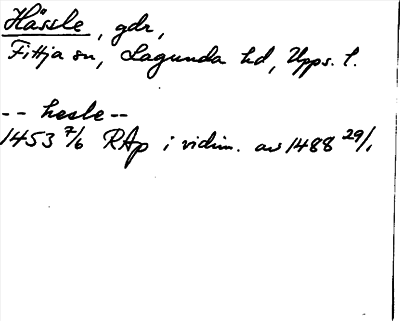 Hässle, gdr,
Fittja sn, Lagunda hd, Upps. l.
-- hesle --
1453 7/6 RAp i vidim. av 1488 29/1